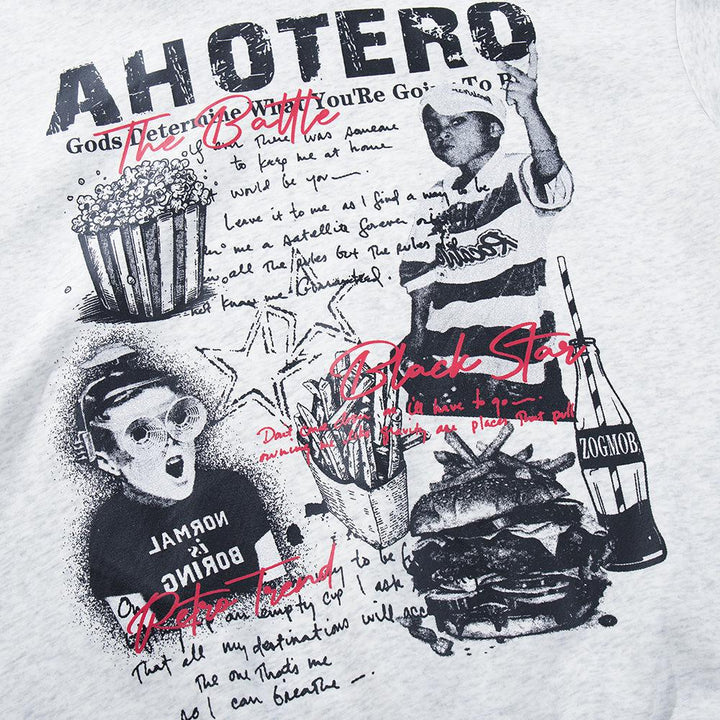 AHOTERO
Gods Determine What You'Re Going To Be
The Battle
If ever there was someone
to keep me at home
would be you
Leave it to me as I find a way to be
me a satellite forever
all the rules but the rules
know me Guaranteed.
Black Star
Don't come down
I'll have to go
owning me like gravity are places that pull
ZOGMOB
NORMAL
is
BORING
Retro Trend
On way to be
empty cup I ask
That all my destinations will acc
The one that's me
so I can breathe